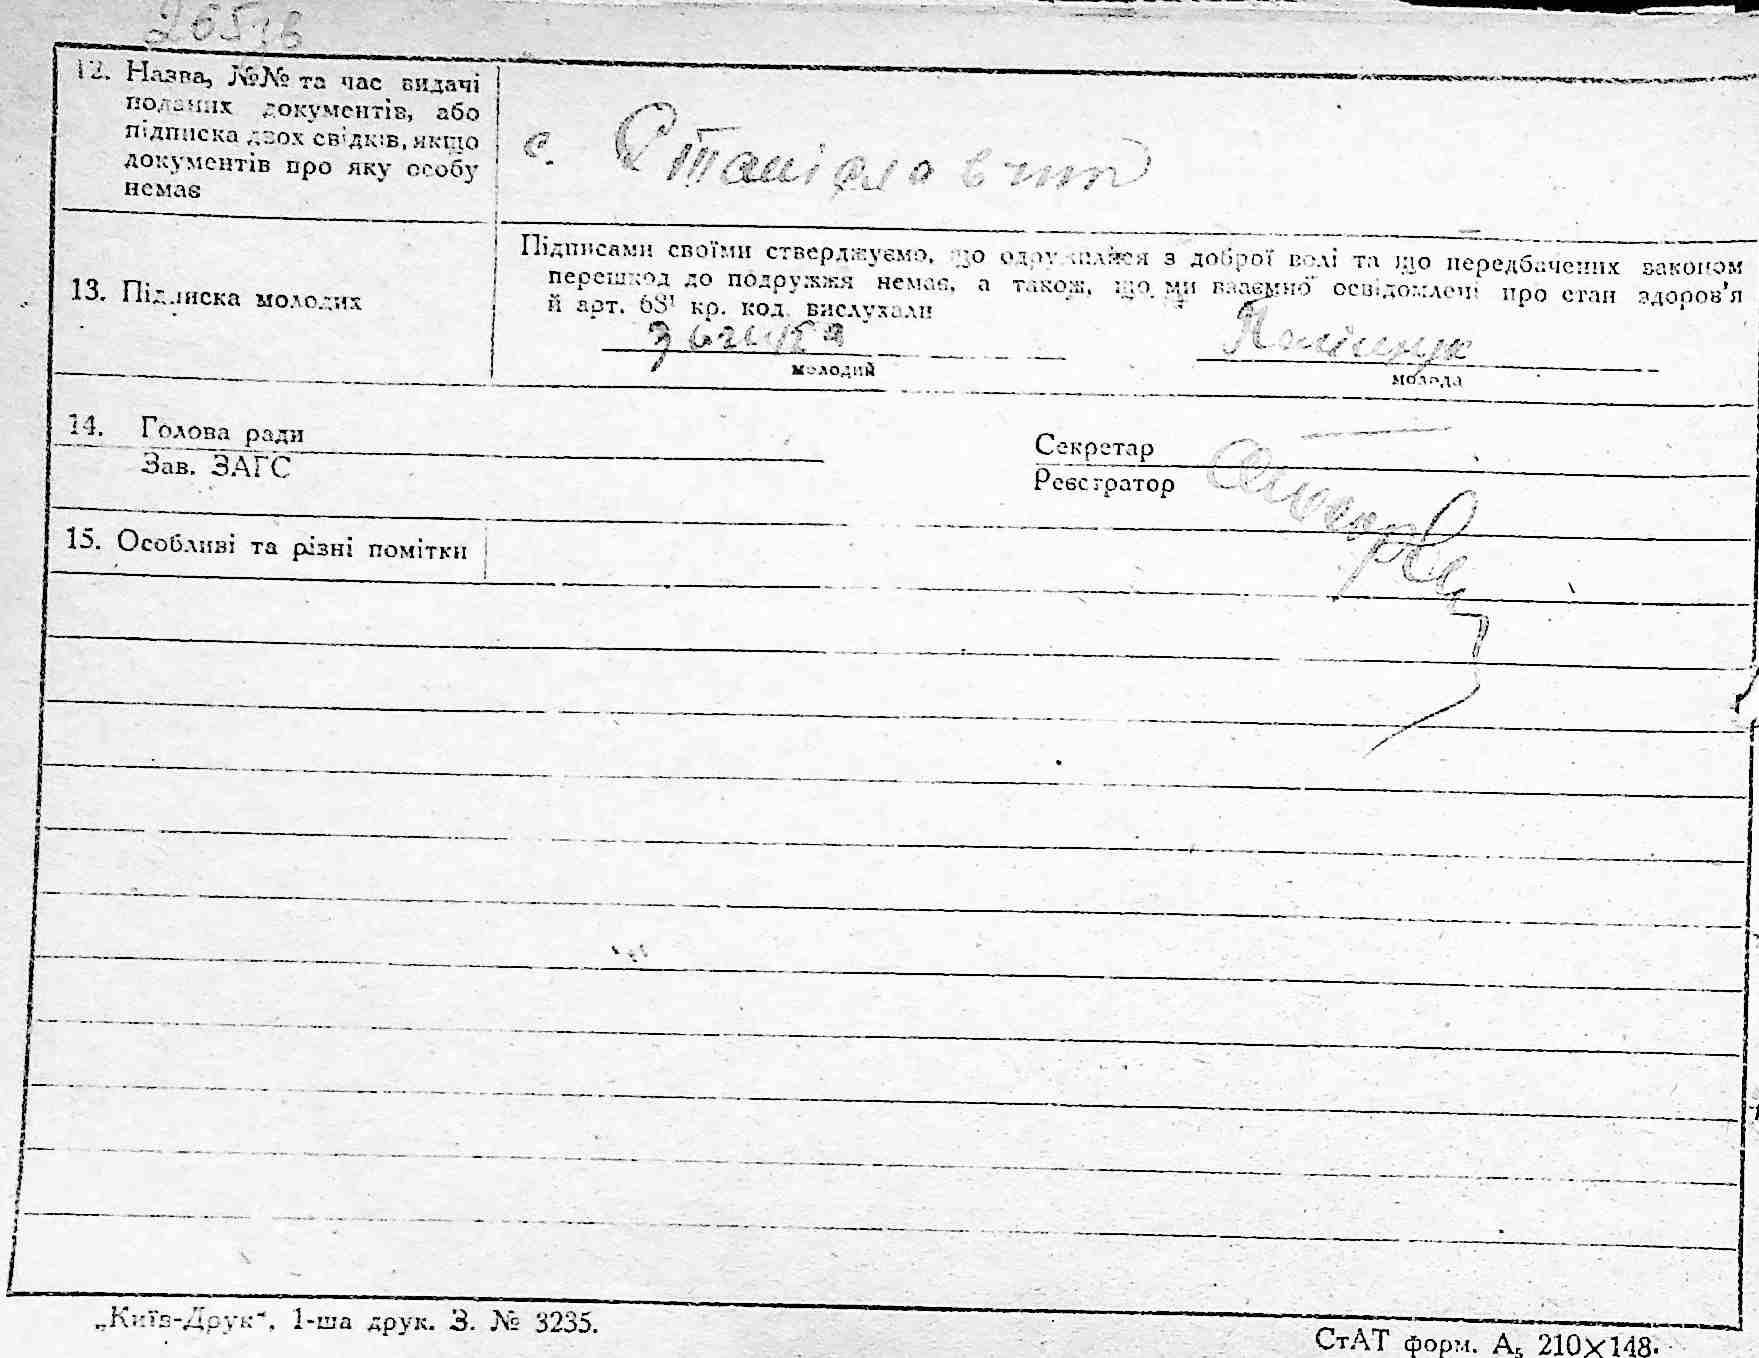 12. Назва, №№ та час видачі
поданих документів, або
підписка двох свідків, якщо
документів про яку особу
немає
с. Станіславчик
13. Підписка молодих
Підписами своїми стверджуємо, що одружилися з доброї волі та що передбачених законом
перешкод до подружжя немає, а також, що ми взаємно освідомлені про стан здоров'я
й арт. 68¹ кр. код. вислухали
молодий
молода
14. Голова ради
Зав. ЗАГС
Секретар
Реєстратор
15. Особливі та різні помітки
„Київ-Друк“, 1-ша друк. З. № 3235.
СтАТ форм. А₅ 210×148.